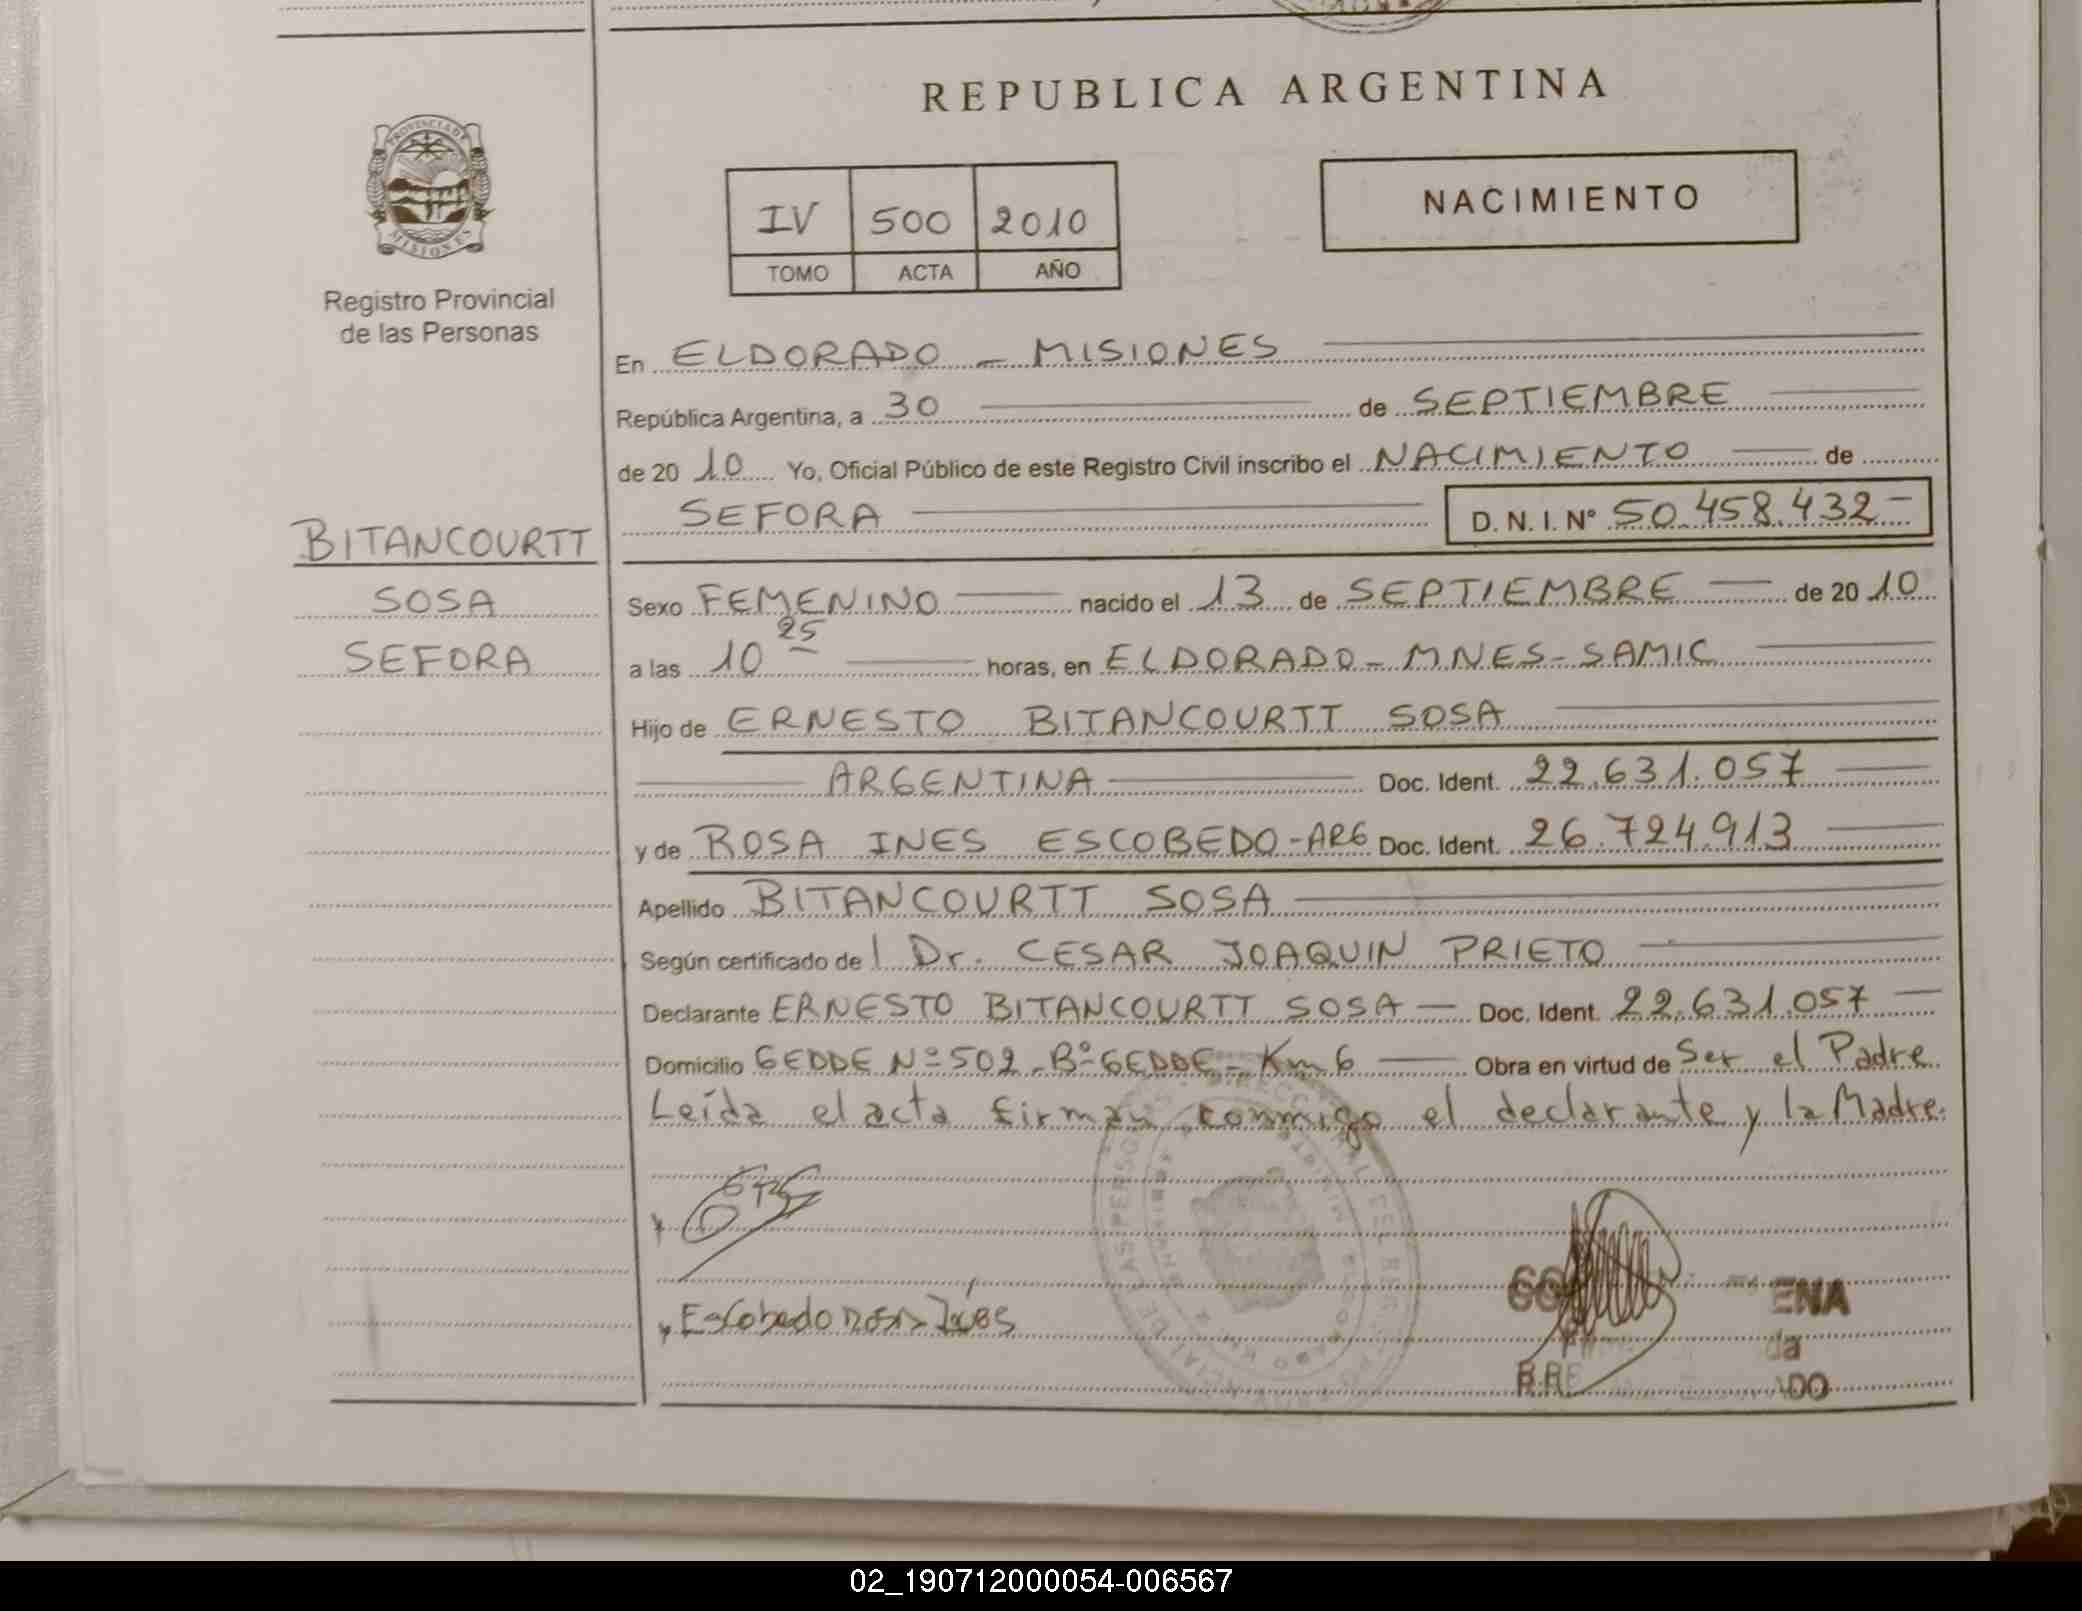 REPUBLICA ARGENTINA
PROVINCIA DE
MISIONES
Registro Provincial
de las Personas
IV 500 2010
TOMO ACTA AÑO
NACIMIENTO
En ELDORADO - MISIONES
República Argentina, a 30 de SEPTIEMBRE
de 20 10 Yo, Oficial Público de este Registro Civil inscribo el NACIMIENTO de
SEFORA D. N. I. Nº 50.458.432-
BITANCOURTT
SOSA
SEFORA
Sexo FEMENINO nacido el 13 de SEPTIEMBRE de 20 10
a las 10 25 horas, en ELDORADO - MNES - SAMIC
Hijo de ERNESTO BITANCOURTT SOSA
ARGENTINA Doc. Ident. 22.631.057
y de ROSA INES ESCOBEDO - ARG Doc. Ident. 26.724.913
Apellido BITANCOURTT SOSA
Según certificado de l Dr. CESAR JOAQUIN PRIETO
Declarante ERNESTO BITANCOURTT SOSA - Doc. Ident. 22.631.057
Domicilio GEDDE Nº 502 - Bº GEDDE - Km 6 Obra en virtud de Ser el Padre
Leída el acta firman conmigo el declarante y la Madre.
Escobedo Rosa Inés
ENA
02_190712000054-006567